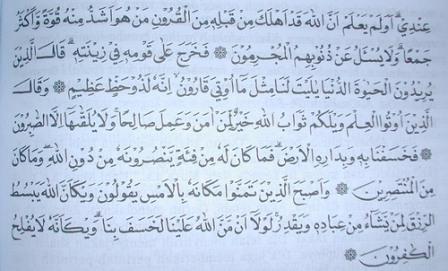 عِندِيٓ أَوَلَمْ يَعْلَمْ أَنَّ اللَّهَ قَدْ أَهْلَكَ مِن قَبْلِهِ مِنَ الْقُرُونِ مَنْ هُوَ أَشَدُّ مِنْهُ قُوَّةً وَأَكْثَرُ
جَمْعًا وَلَا يُسْـَٔلُ عَن ذُنُوبِهِمُ الْمُجْرِمُونَ ۞ فَخَرَجَ عَلَىٰ قَوْمِهِ فِي زِينَتِهِ قَالَ الَّذِينَ
يُرِيدُونَ الْحَيَوٰةَ الدُّنْيَا يَٰلَيْتَ لَنَا مِثْلَ مَآ أُوتِيَ قَٰرُونُ إِنَّهُ لَذُو حَظٍّ عَظِيمٍ ۞ وَقَالَ
الَّذِينَ أُوتُوا الْعِلْمَ وَيْلَكُمْ ثَوَابُ اللَّهِ خَيْرٌ لِّمَنْ ءَامَنَ وَعَمِلَ صَٰلِحًا وَلَا يُلَقَّىٰهَآ إِلَّا الصَّٰبِرُونَ
۞ فَخَسَفْنَا بِهِ وَبِدَارِهِ الْأَرْضَ فَمَا كَانَ لَهُ مِن فِئَةٍ يَنصُرُونَهُ مِن دُونِ اللَّهِ وَمَا كَانَ
مِنَ الْمُنتَصِرِينَ ۞ وَأَصْبَحَ الَّذِينَ تَمَنَّوْا مَكَانَهُ بِالْأَمْسِ يَقُولُونَ وَيْكَأَنَّ اللَّهَ يَبْسُطُ
الرِّزْقَ لِمَن يَشَآءُ مِنْ عِبَادِهِ وَيَقْدِرُ لَوْلَآ أَن مَّنَّ اللَّهُ عَلَيْنَا لَخَسَفَ بِنَا وَيْكَأَنَّهُ لَا يُفْلِحُ
الْكَٰفِرُونَ ۞